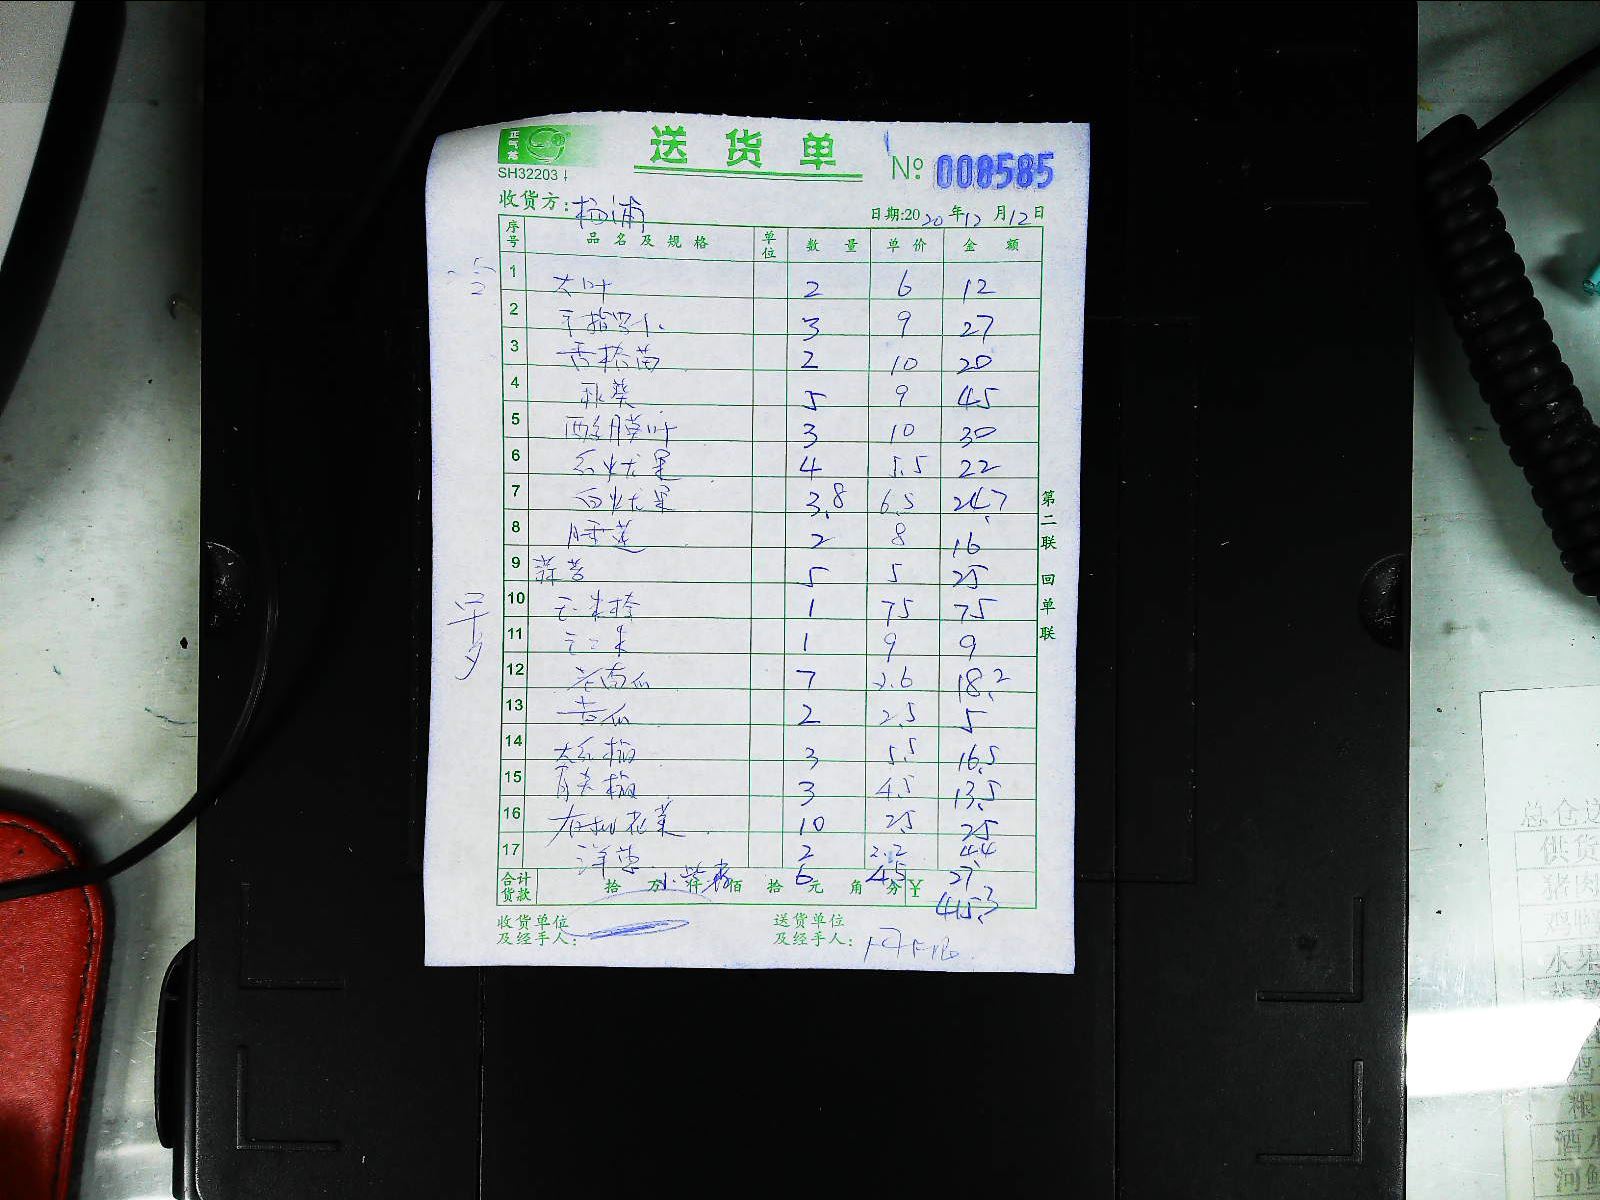 正气龙
送货单
SH32203
№ 000585
收货方: 杨浦
日期:2020年12月12日
序号 品名及规格 单位 数量 单价 金额
1 大叶 2 6 12
2 手指萝卜 3 9 27
3 香椿苗 2 10 20
4 秋葵 5 9 45
5 酸膜叶 3 10 30
6 红火龙果 4 5.5 22
7 白火龙果 3.8 6.5 24.7
8 睡莲 2 8 16
9 蒜苔 5 5 25
10 玉米棒 1 75 75
11 玉米 1 9 9
12 老南瓜 7 2.6 18.2
13 苦瓜 2 2.5 5
14 大红椒 3 5.5 16.5
15 青尖椒 3 4.5 13.5
16 有机花菜 10 25 25
17 洋葱 2 2.2 4.4
小 6 4.5 27
合计货款 拾 万 仟 佰 拾 元 角 分 ¥ 415.3
收货单位及经手人:
送货单位及经手人:
第二联 回单联
总仓
供货
猪肉
鸡
水果
粮
酒水
河鲜